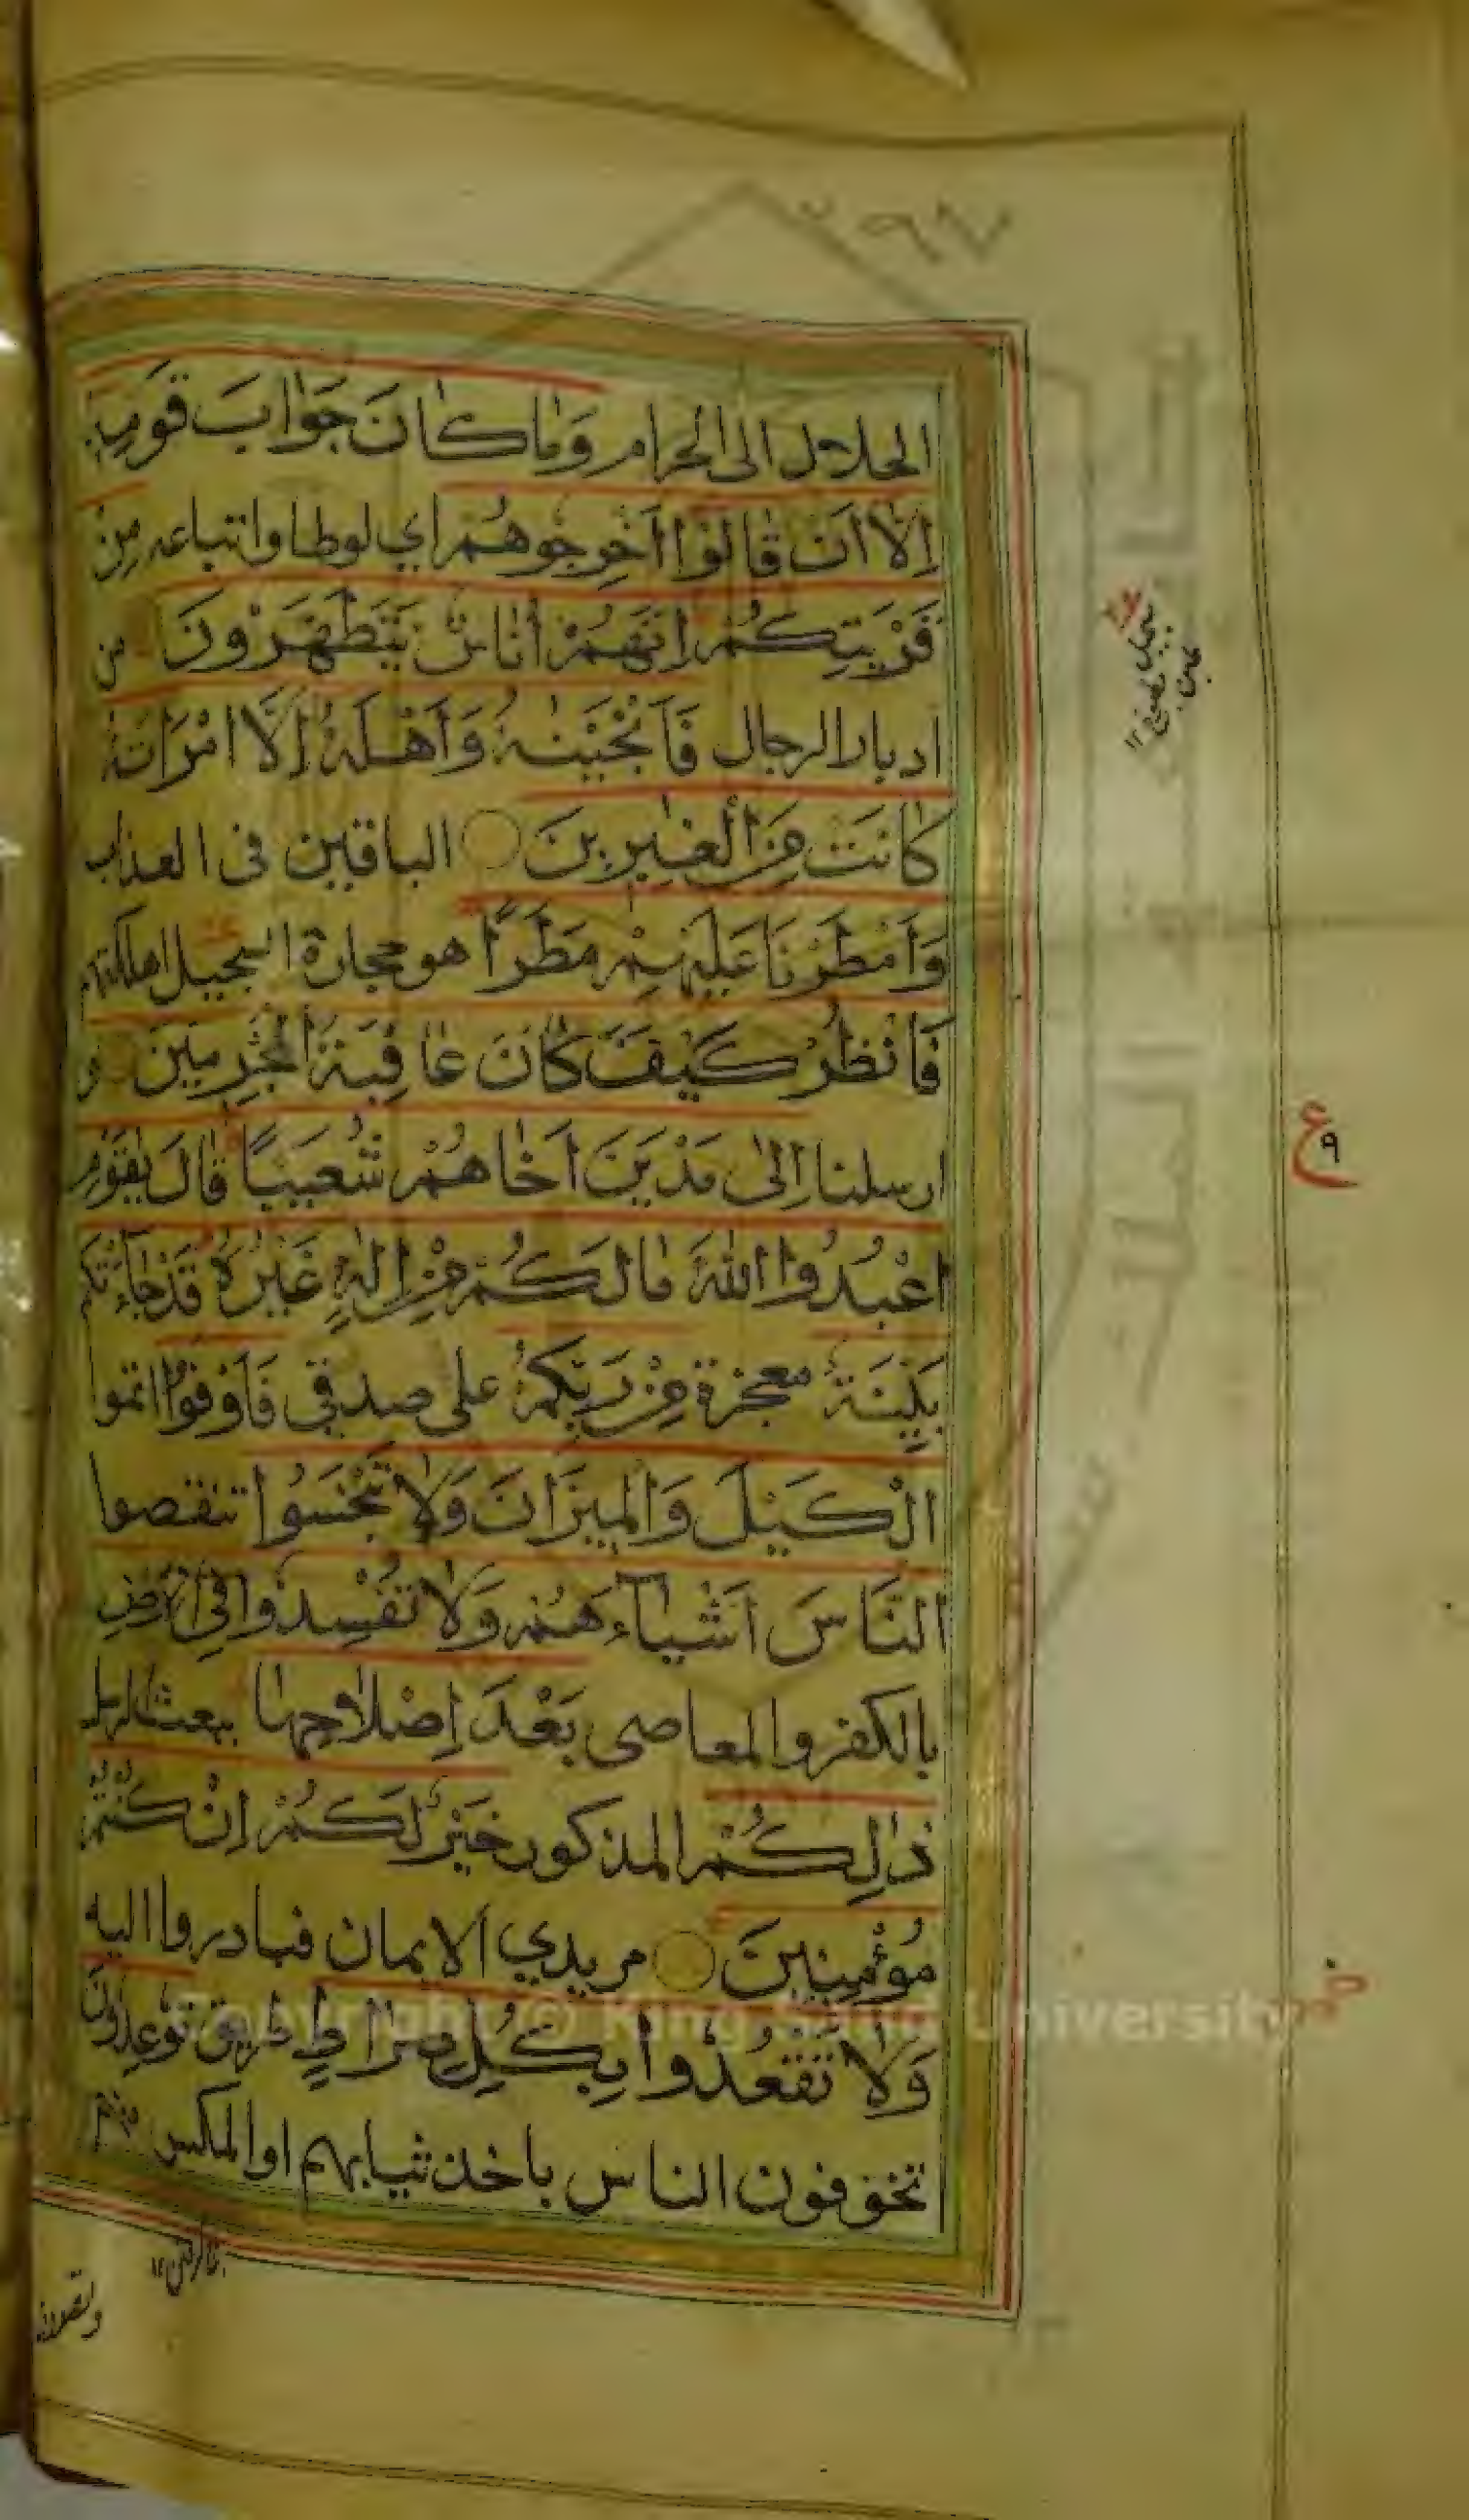 ٢٦٧
الحلال الى الحرام وَمَا كَانَ جَوَابَ قَوْمِهٖ
اِلَّا اَنْ قَالُوْا اَخْرِجُوْهُمْ اي لوطا واتباعه مِنْ
قَرْيَتِكُمْ اِنَّهُمْ اُنَاسٌ يَتَطَهَّرُوْنَ من
ادبار الرجال فَاَنْجَيْنٰهُ وَاَهْلَهُ اِلَّا امْرَاَتَهُ
كَانَتْ مِنَ الْغٰبِرِيْنَ الباقين فى العذاب
وَاَمْطَرْنَا عَلَيْهِمْ مَطَرًا هو حجارة السجيل اهلكتهم
فَانْظُرْ كَيْفَ كَانَ عَاقِبَةُ الْمُجْرِمِيْنَ و
ارسلنا اِلٰى مَدْيَنَ اَخَاهُمْ شُعَيْبًا قَالَ يٰقَوْمِ
اعْبُدُوا اللّٰهَ مَا لَكُمْ مِنْ اِلٰهٍ غَيْرُهُ قَدْ جَآءَتْكُمْ
بَيِّنَةٌ معجزة مِنْ رَبِّكُمْ على صدقي فَاَوْفُوا اتموا
الْكَيْلَ وَالْمِيْزَانَ وَلَا تَبْخَسُوا تنقصوا
النَّاسَ اَشْيَآءَهُمْ وَلَا تُفْسِدُوْا فِى الْاَرْضِ
بالكفر والمعاصى بَعْدَ اِصْلَاحِهَا ببعث الرسل
ذٰلِكُمْ المذكور خَيْرٌ لَكُمْ اِنْ كُنْتُمْ
مُؤْمِنِيْنَ مريدي الايمان فبادروا اليه
وَلَا تَقْعُدُوْا بِكُلِّ صِرَاطٍ طريق تُوْعِدُوْنَ
تخوفون الناس باخذ ثيابهم او المكس منهم
وتصدون
ع ٩
Copyright © King Saud University